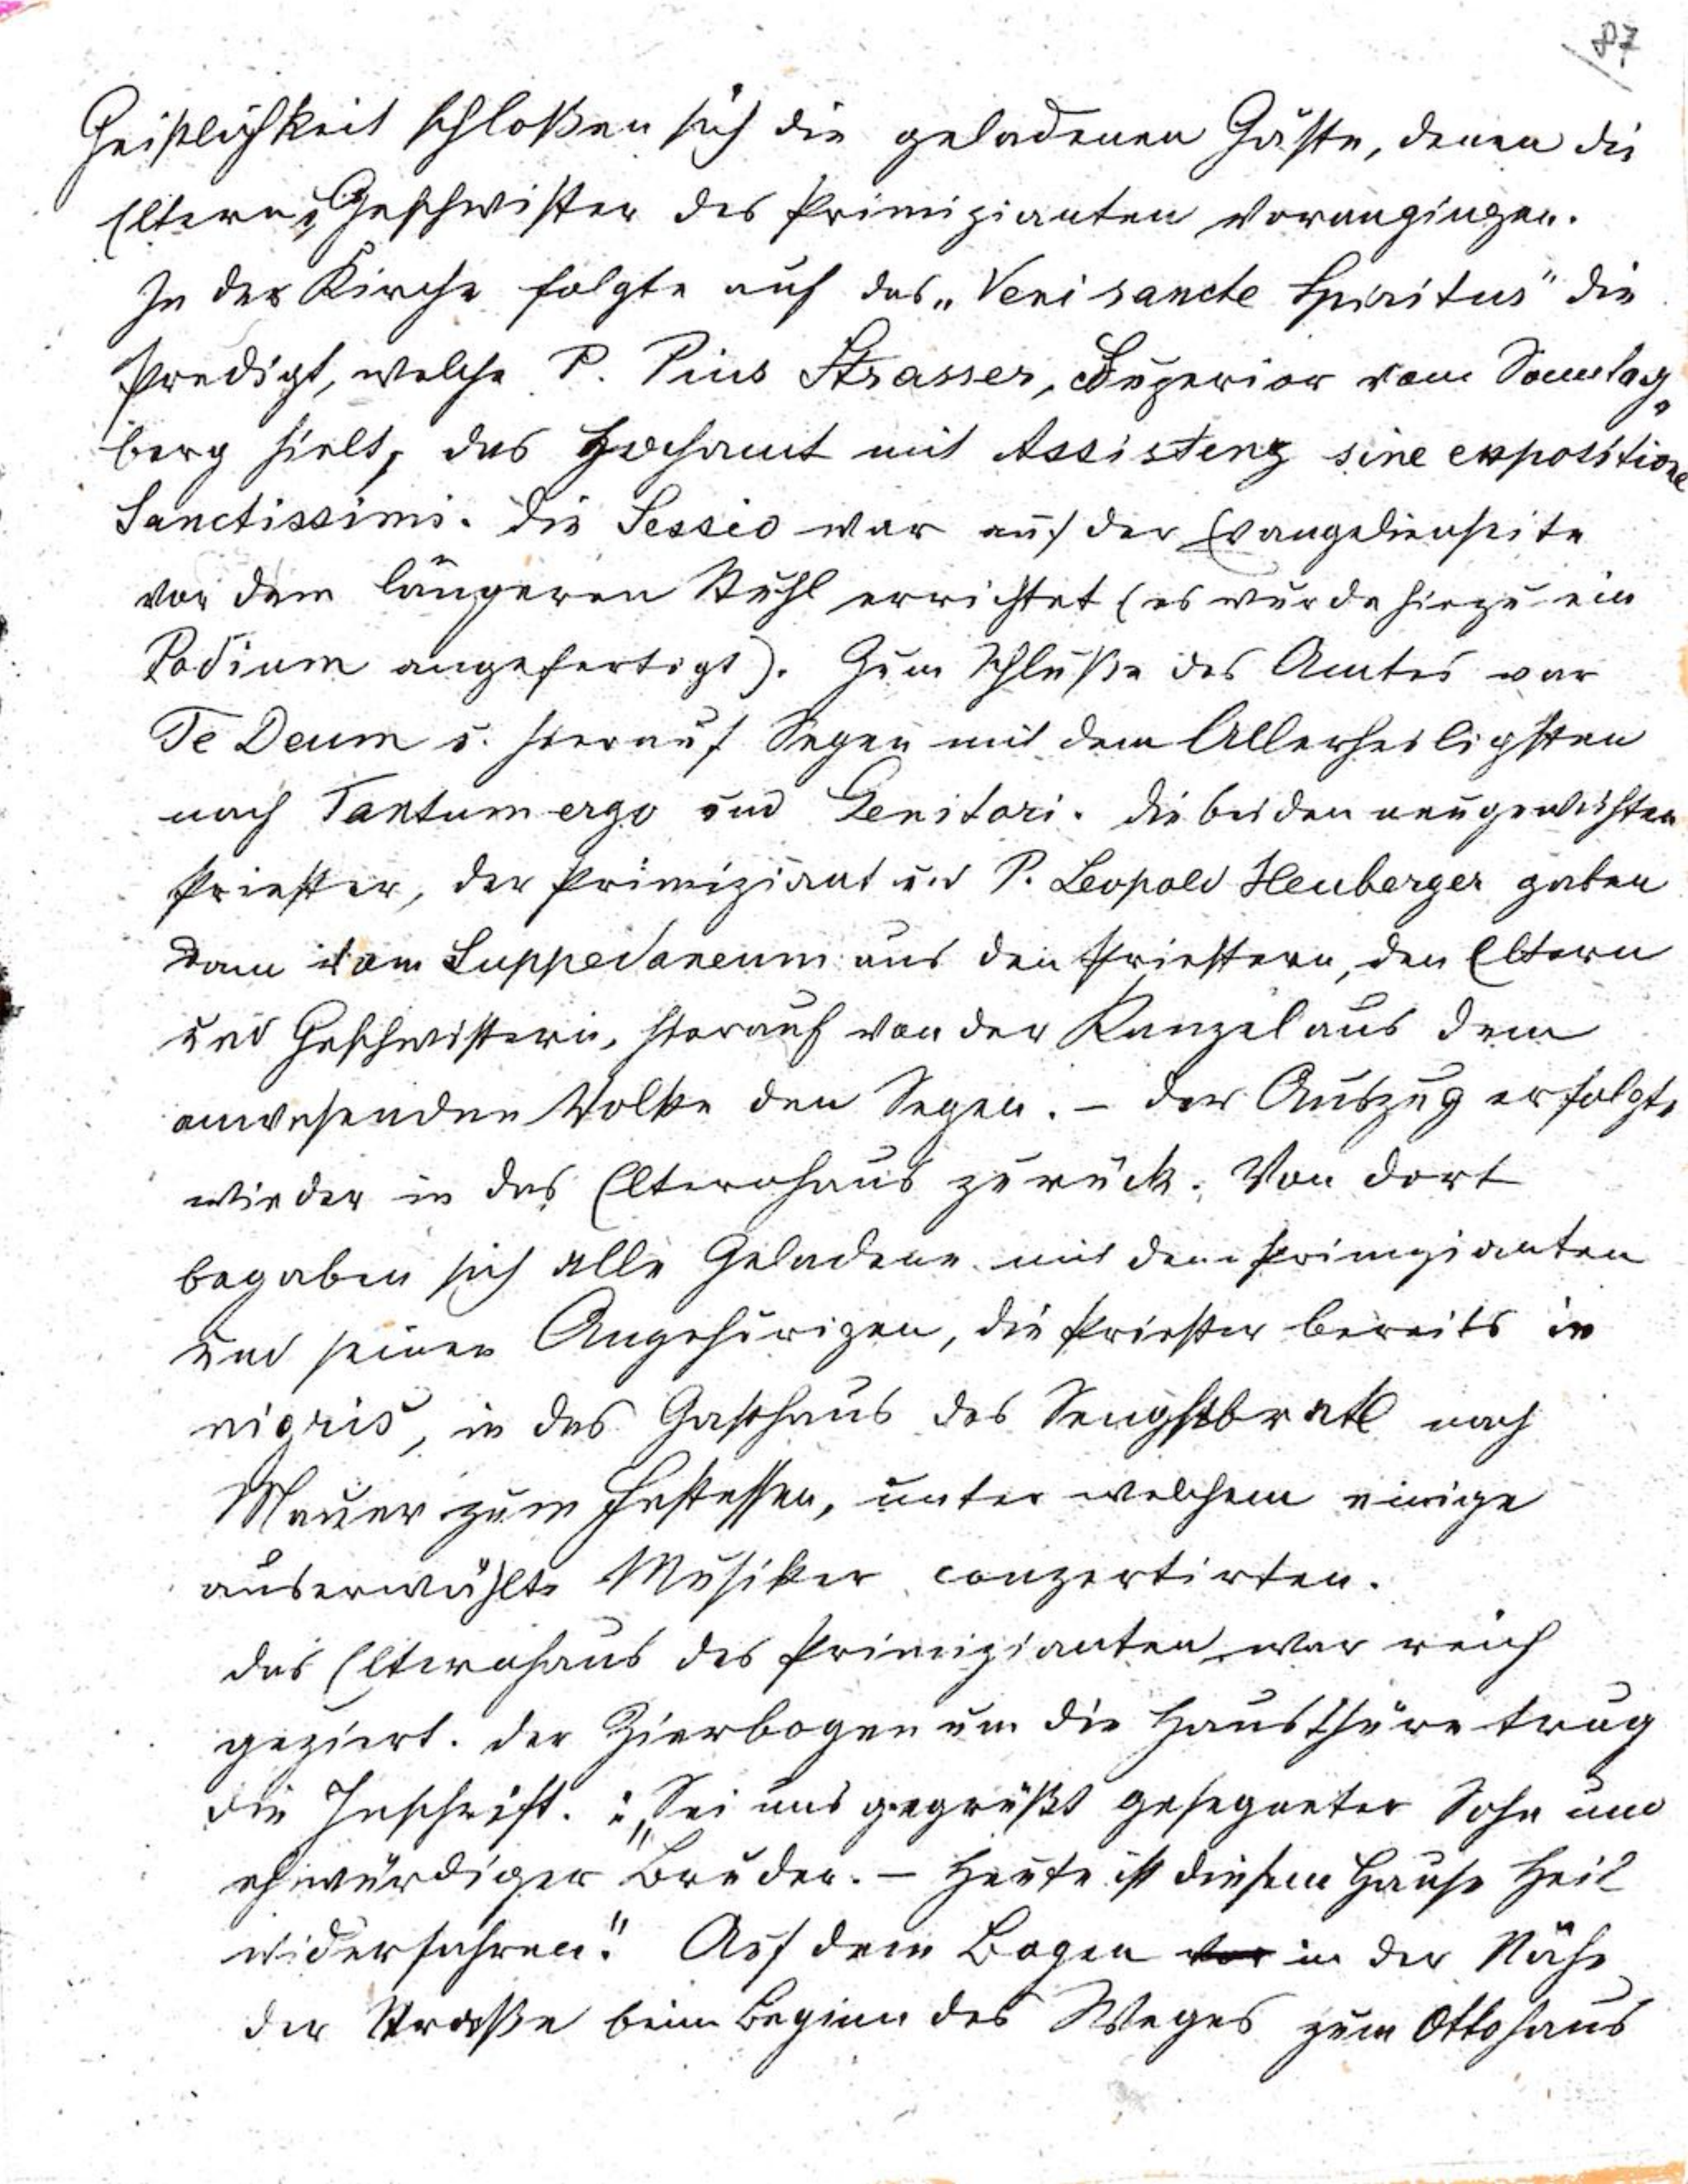 87
Geistlichkeit schloßen sich die geladenen Gäste, denen die
Eltern u. Geschwister des Primizianten vorangingen.
In der Kirche folgte auf das „Veni sancte Spiritus" die
Predigt, welche P. Pius Strasser, Superior vom Sonntag„
berg hielt, das Hochamt mit Assistenz sine expositione
Sanctissimi. Die Sessio war auf der Evangelienseite
vor dem längeren Stuhl errichtet (es wurde hiezu ein
Podium angefertigt). Zum Schluße des Amtes war
Te Deum u. hierauf Segen mit dem Allerheiligsten
nach Tantum ergo und Genitori. Die beiden neugeweihten
Priester, der Primiziant und P. Leopold Heuberger gaben
vom Suppedaneum aus den Priestern, den Eltern
und Geschwistern, hierauf von der Kanzel aus dem
anwesenden Volke den Segen. – Der Auszug erfolgte
wieder in das Elternhaus zurück. Von dort
begaben sich alle Geladene mit dem Primizianten
und seinen Angehörigen, die Priester bereits in
nigris, in das Gasthaus des Sengstbratl nach
Mauer zum Festessen, unter welchem einige
auserwählte Musiker conzertirten.
Das Elternhaus des Primizianten war reich
geziert. Der Zierbogen um die Hausthüre trug
die Inschrift. : „Sei uns gegrüßt gesegneter Sohn und
ehrwürdiger Bruder. – Heute ist diesem Hause Heil
widerfahren." Auf dem Bogen vor in der Nähe
der Straße beim Beginn des Weges zum Ottohaus